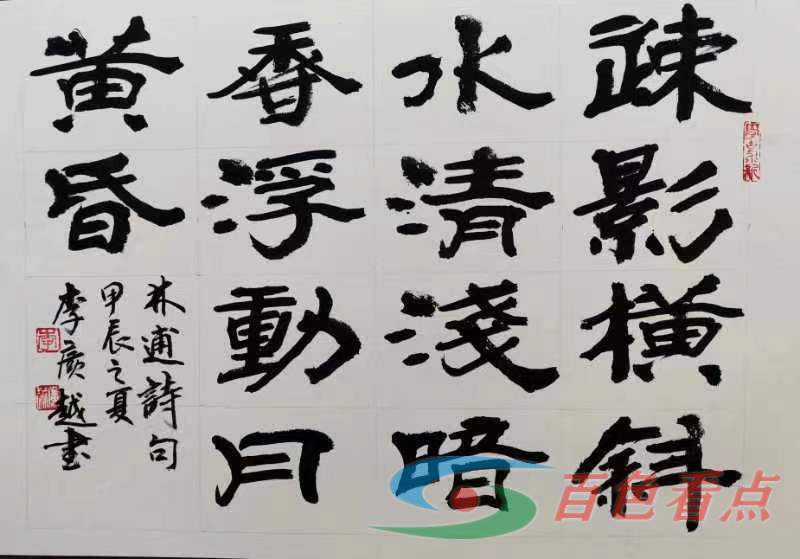 疎影橫斜
水清淺暗
香浮動月
黃昏
林逋詩句
甲辰之夏
李廣越書
百色看点